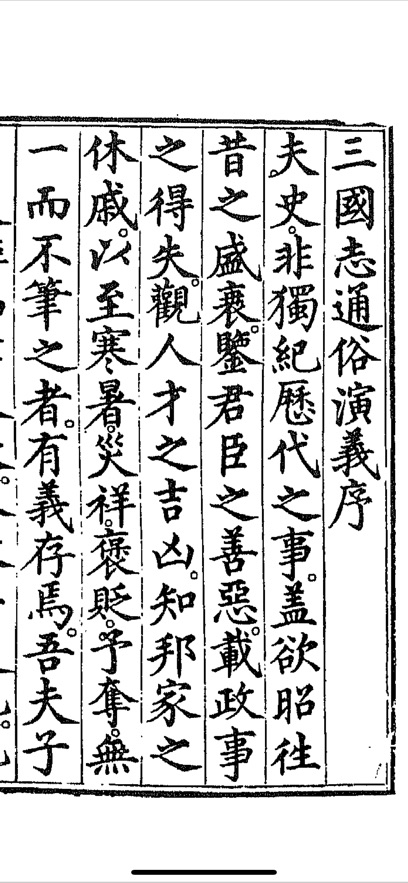 三國志通俗演義序
夫史。非獨紀歷代之事。盖欲昭徃
昔之盛衰。鑒君臣之善惡。載政事
之得失。觀人才之吉凶。知邦家之
休戚。以至寒暑。災祥。褒貶。予奪。無
一而不筆之者。有義存焉。吾夫子